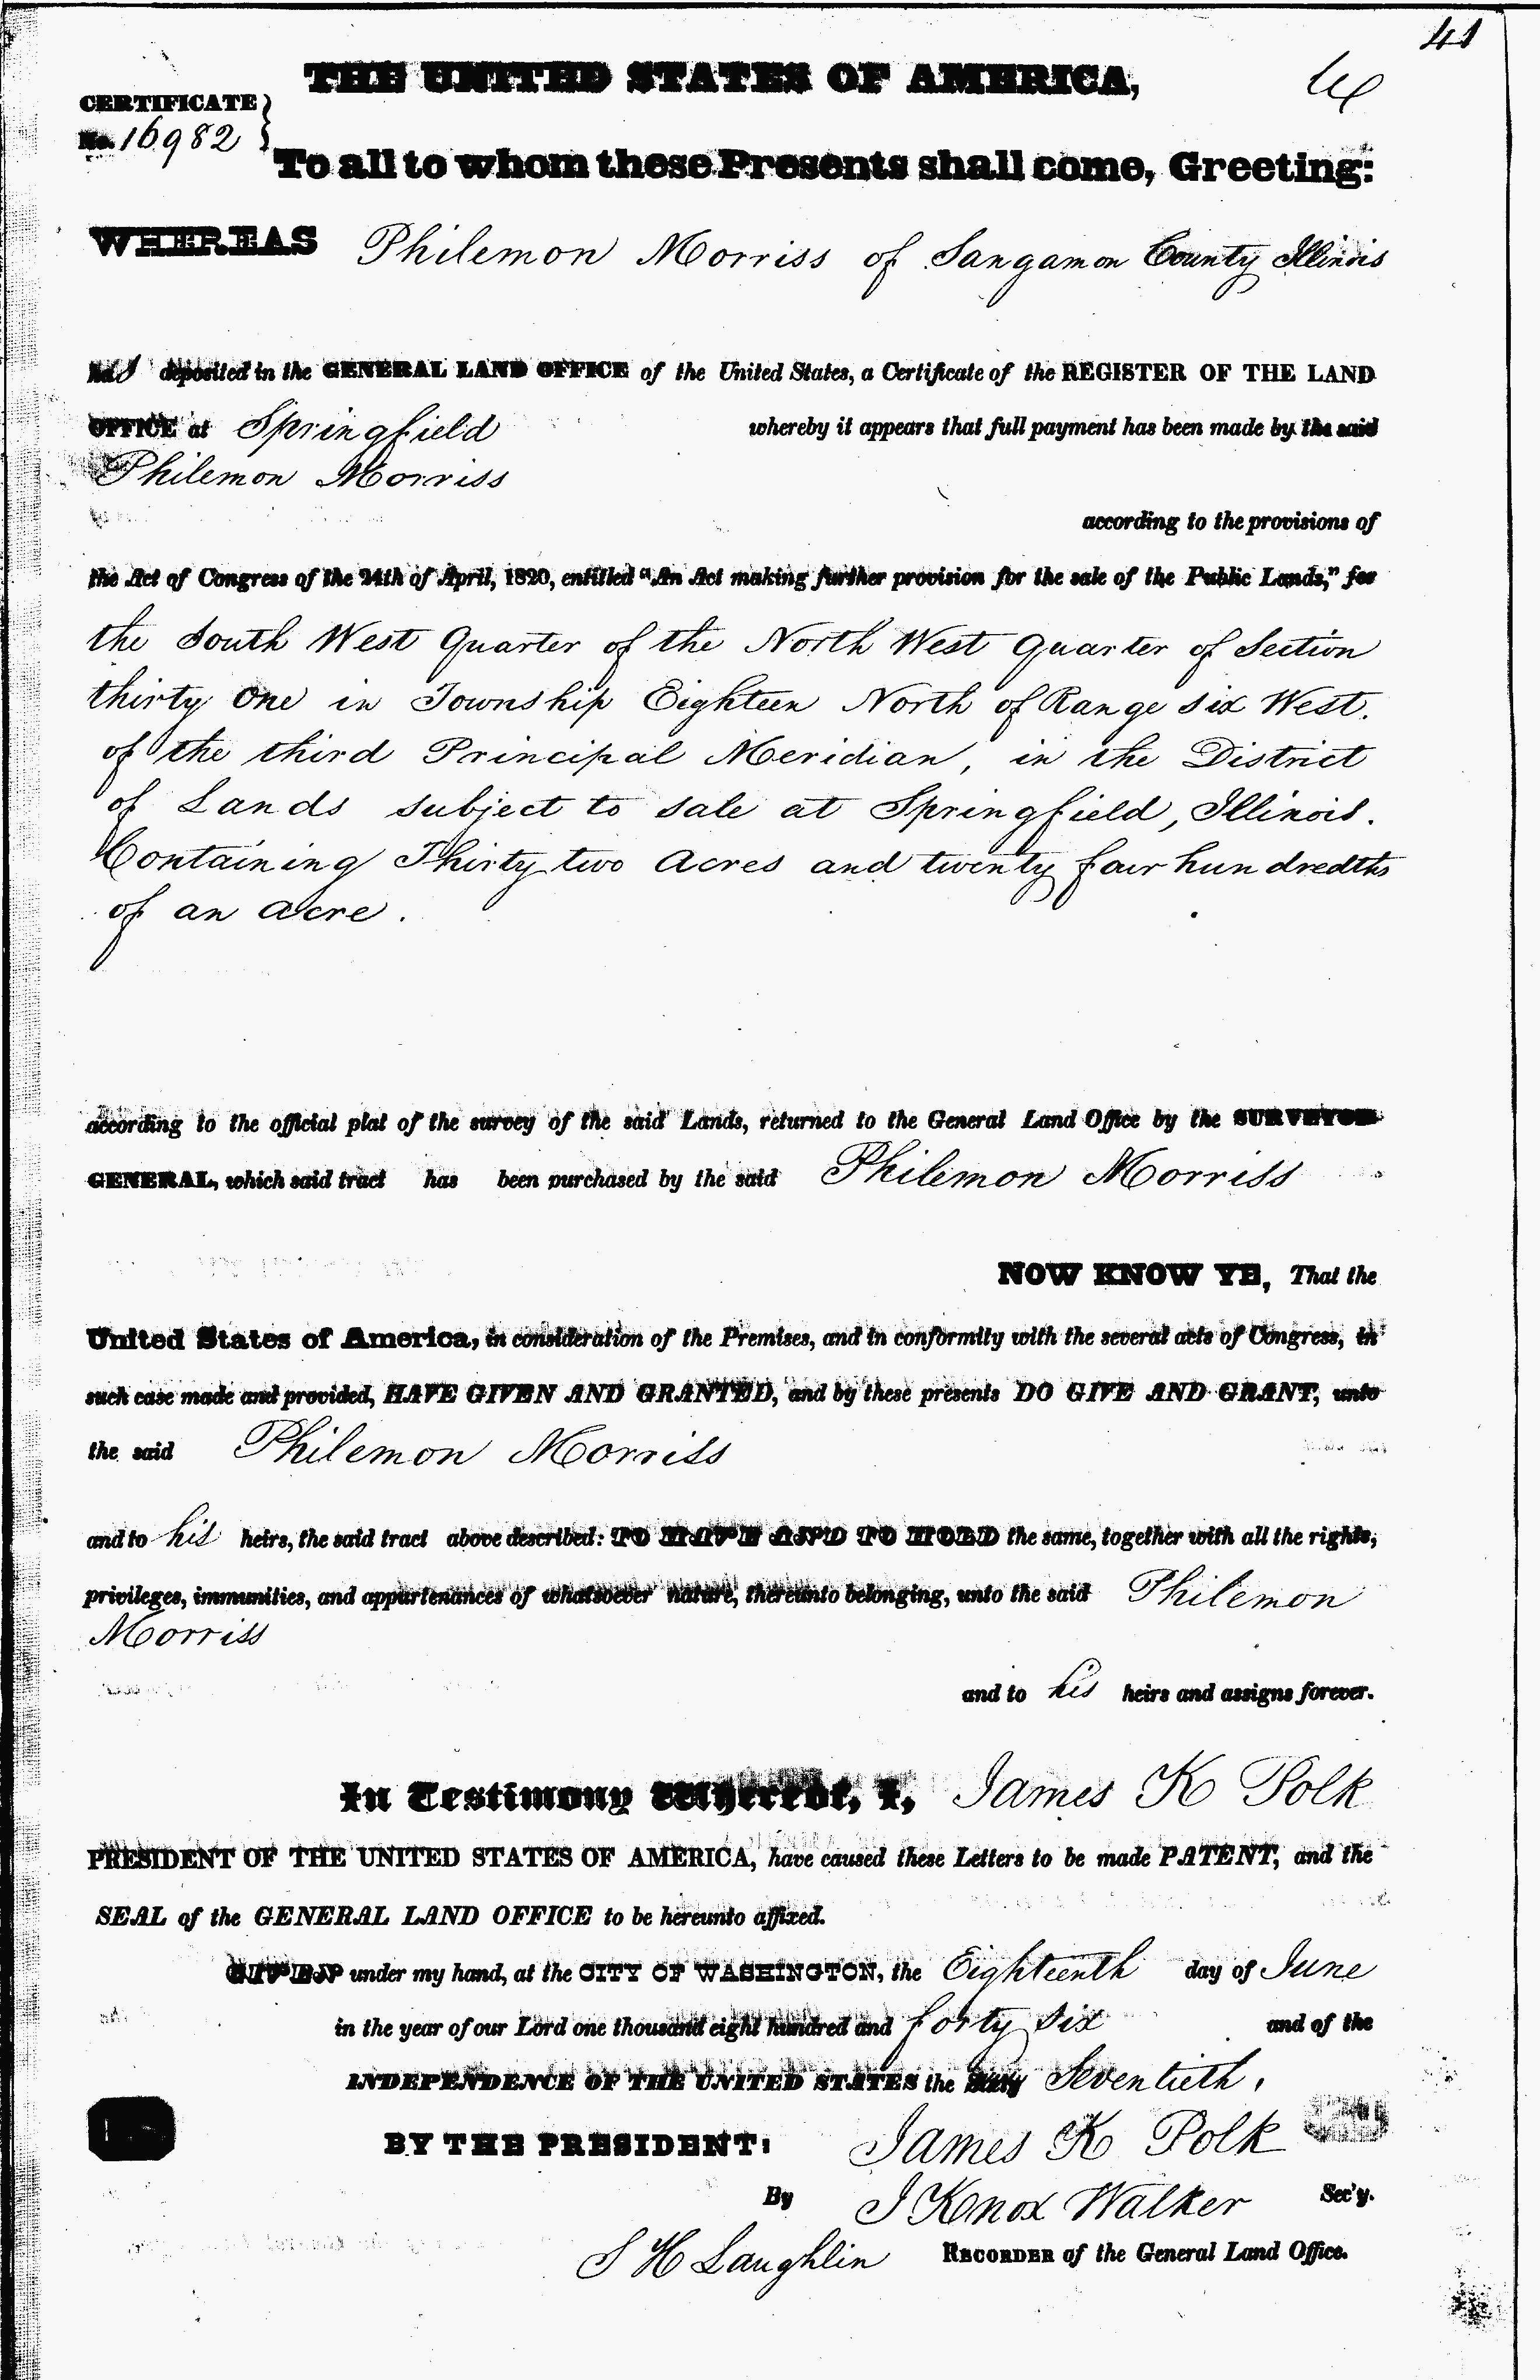 41
THE UNITED STATES OF AMERICA,
CERTIFICATE
No. 16982
To all to whom these Presents shall come, Greeting:
WHEREAS Philemon Morriss of Sangamon County Illinois
has deposited in the GENERAL LAND OFFICE of the United States, a Certificate of the REGISTER OF THE LAND
OFFICE at Springfield whereby it appears that full payment has been made by the said
Philemon Morriss
according to the provisions of
the Act of Congress of the 24th of April, 1820, entitled "An Act making further provision for the sale of the Public Lands," for
the South West Quarter of the North West Quarter of Section
thirty One in Township Eighteen North of Range six West.
of the third Principal Meridian, in the District
of Lands subject to sale at Springfield, Illinois.
Containing Thirty two Acres and twenty four hundredths
of an acre.
according to the official plat of the survey of the said Lands, returned to the General Land Office by the SURVEYOR
GENERAL, which said tract has been purchased by the said Philemon Morriss
NOW KNOW YE, That the
United States of America, in consideration of the Premises, and in conformity with the several acts of Congress, in
such case made and provided, HAVE GIVEN AND GRANTED, and by these presents DO GIVE AND GRANT, unto
the said Philemon Morriss
and to his heirs, the said tract above described: TO HAVE AND TO HOLD the same, together with all the rights,
privileges, immunities, and appurtenances of whatsoever nature, thereunto belonging, unto the said Philemon
Morriss
and to his heirs and assigns forever.
In Testimony Whereof, I, James K Polk
PRESIDENT OF THE UNITED STATES OF AMERICA, have caused these Letters to be made PATENT, and the
SEAL of the GENERAL LAND OFFICE to be hereunto affixed.
GIVEN under my hand, at the CITY OF WASHINGTON, the Eighteenth day of June
in the year of our Lord one thousand eight hundred and forty six and of the
INDEPENDENCE OF THE UNITED STATES the Seventieth.
BY THE PRESIDENT: James K Polk
By J Knox Walker Sec'y.
S H Laughlin RECORDER of the General Land Office.